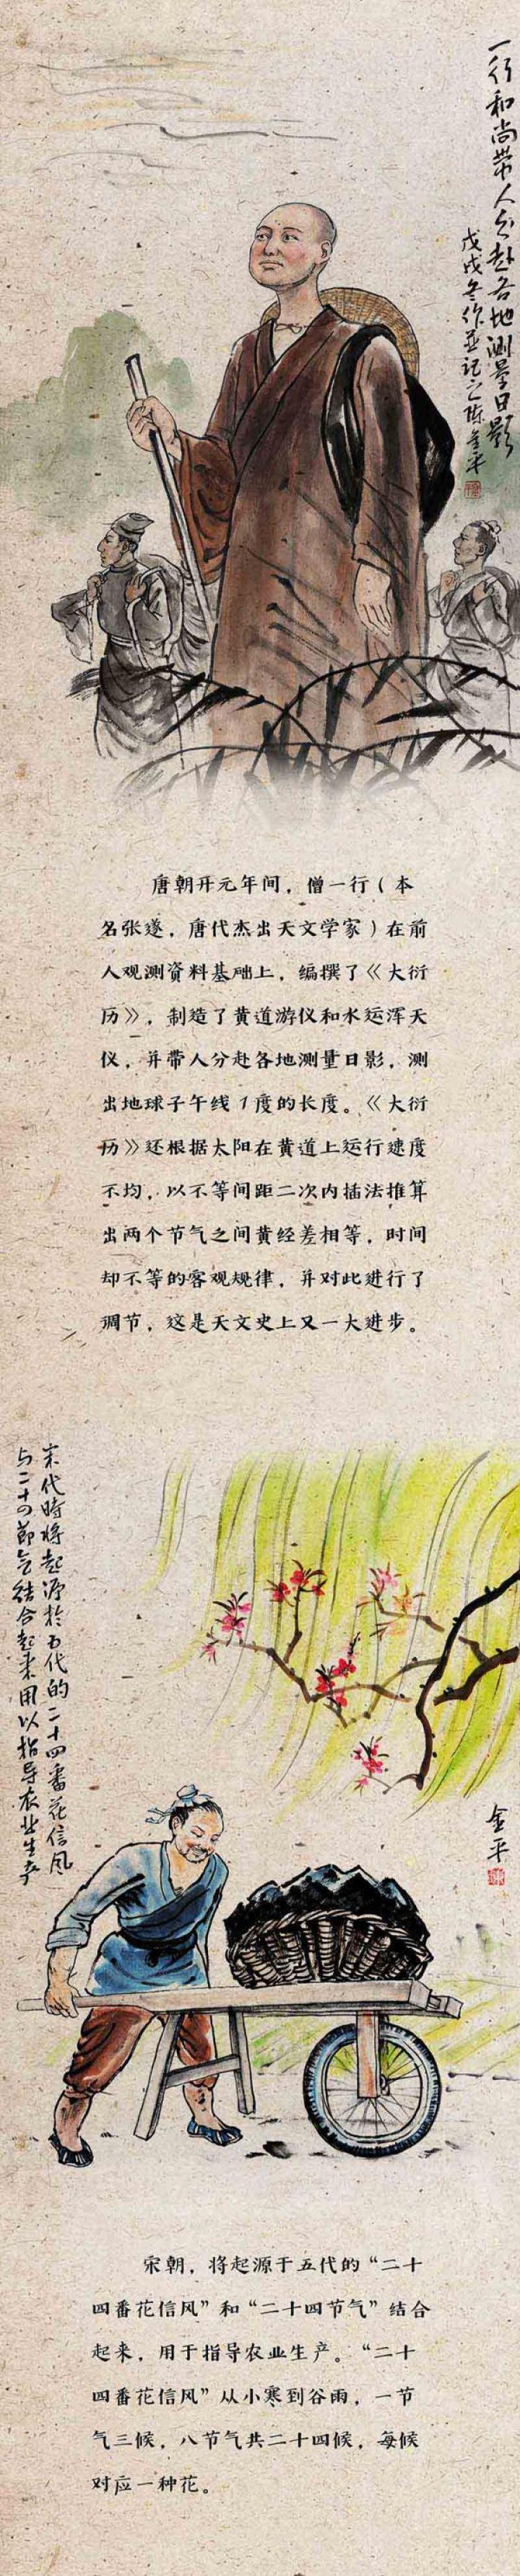 一行和尚带人分赴各地测量日影
戊戌冬作並记之陈金平
唐朝开元年间，僧一行（本
名张遂，唐代杰出天文学家）在前
人观测资料基础上，编撰了《大衍
历》，制造了黄道游仪和水运浑天
仪，并带人分赴各地测量日影，测
出地球子午线1度的长度。《大衍
历》还根据太阳在黄道上运行速度
不均，以不等间距二次内插法推算
出两个节气之间黄经差相等，时间
却不等的客观规律，并对此进行了
调节，这是天文史上又一大进步。
宋代時将起源於五代的二十四番花信风
与二十四節气结合起来用以指导农业生产
金平
宋朝，将起源于五代的“二十
四番花信风”和“二十四节气”结合
起来，用于指导农业生产。“二十
四番花信风”从小寒到谷雨，一节
气三候，八节气共二十四候，每候
对应一种花。